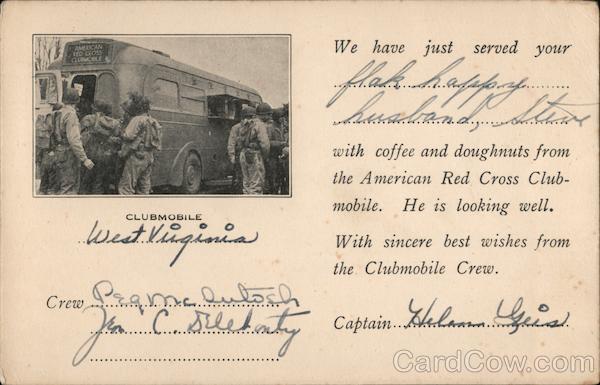 AMERICAN
RED CROSS
CLUBMOBILE
CLUBMOBILE
West Virginia
Crew Peg McIntosh
Jen C. Delehanty
We have just served your
flak happy
husband, Steve
with coffee and doughnuts from
the American Red Cross Club-
mobile. He is looking well.
With sincere best wishes from
the Clubmobile Crew.
Captain Helena Geis
CardCow.com